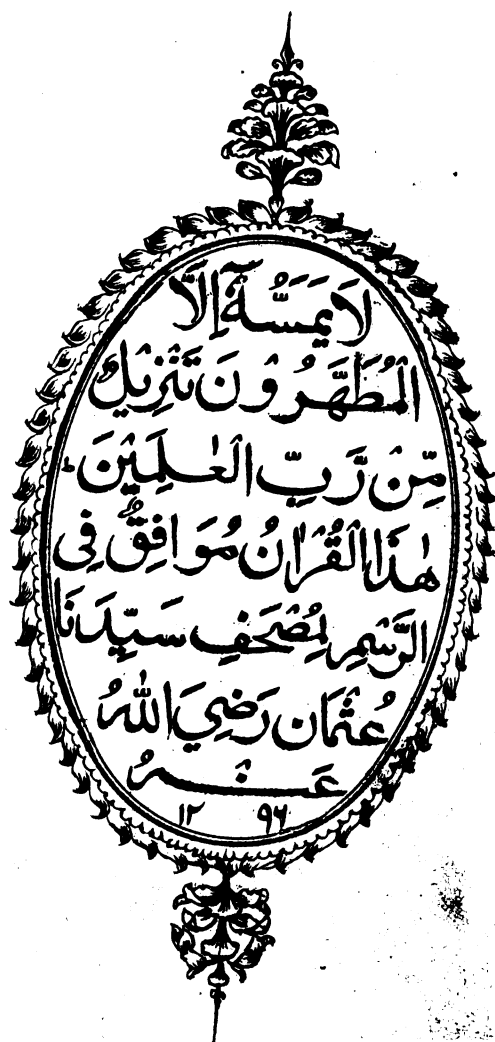 لَا يَمَسُّهُٓ اِلَّا
الْمُطَهَّرُوْنَ تَنْزِيْلٌ
مِّنْ رَّبِّ الْعٰلَمِيْنَ ؕ
هٰذَا الْقُرْاٰنُ مُوَافِقٌ فِى
الرَّسْمِ لِمُصْحَفِ سَيِّدَنَا
عُثْمَان رَضِيَ اللّٰهُ
عَنْهُ
١٢ ٩٦